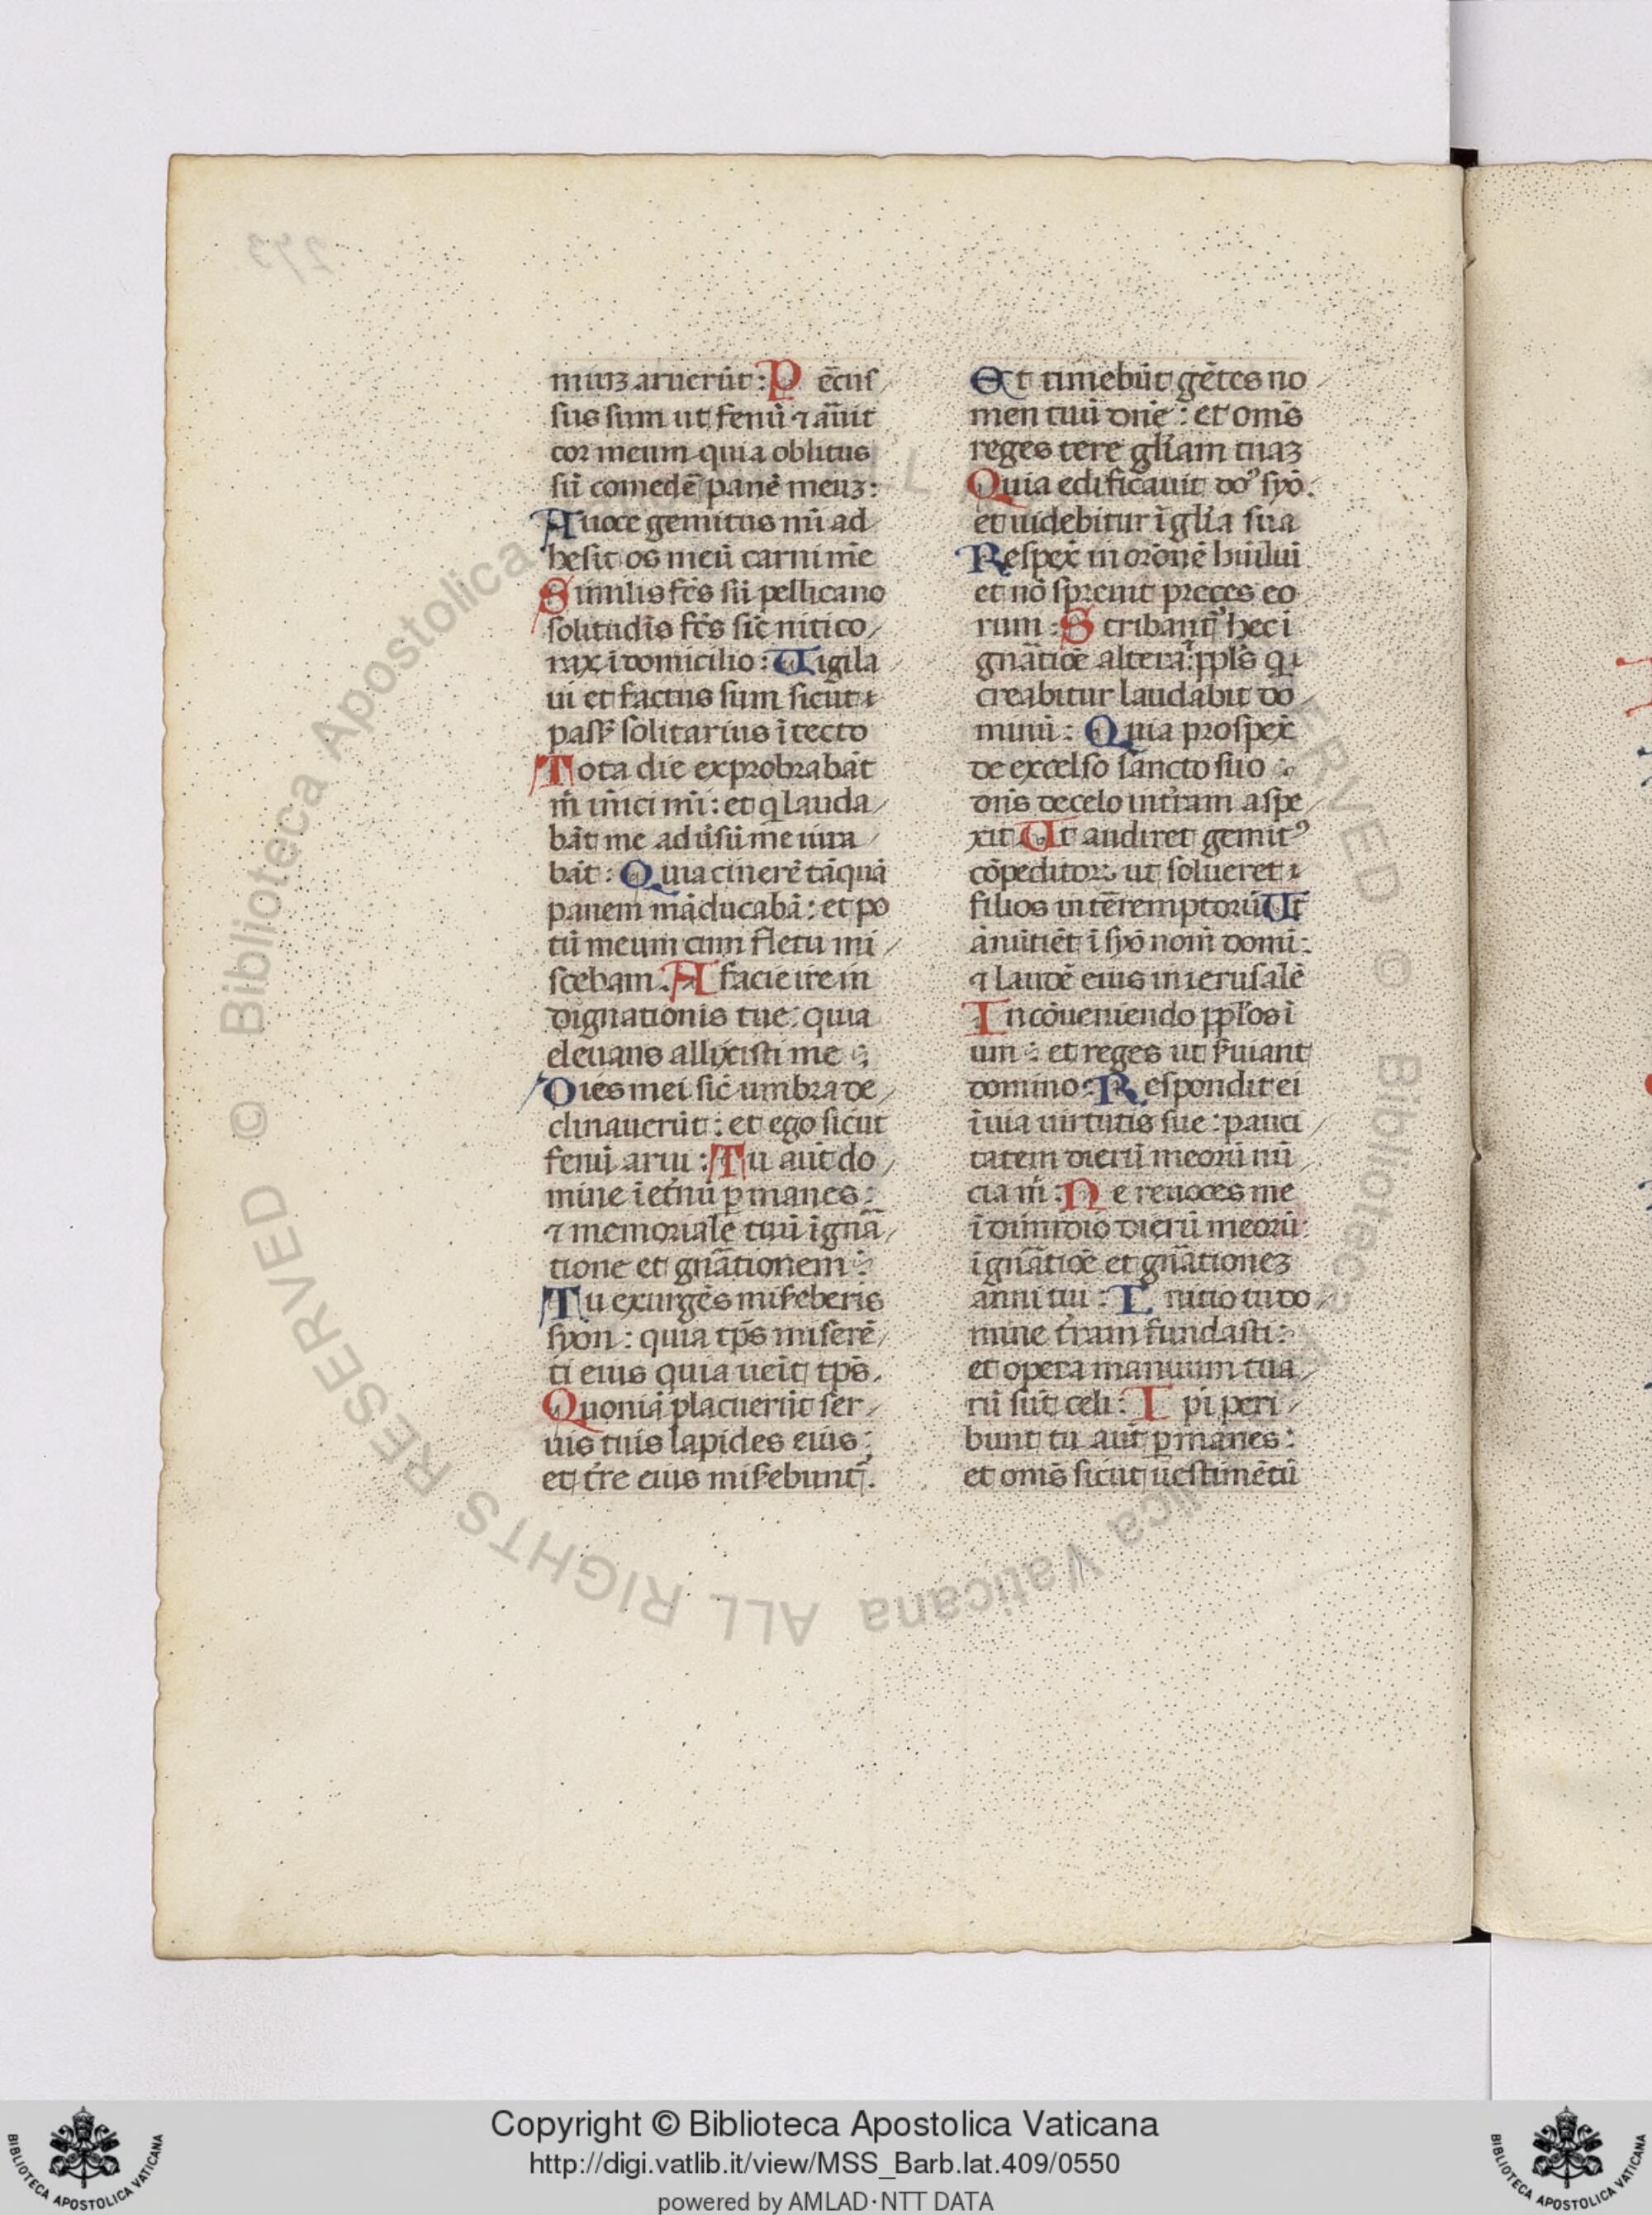 273
miuꝫ aruerūt : P ecuſ
sus sum ut fenū ⁊ aūit
cor meum quia oblitus
sū comedē panē meuꝫ :
A uoce gemitus mī ad
hesit os meū carni me
Similis fcs̄ sū pellicano
solitudīs fcs̄ sic̄ nitico
rax ī domicilio : Uigila
ui et factus sum sicut
pasẜ solitarius ī tecto
Tota die exprobrabāt
m̄ īīnici mī : et q lauda
bāt me adūsū me iura
bāt : Quia cinerē tāquā
panem māducabā : et po
tū meum cum fletu mi
scebam . A facie ire in
dignationis tue : quia
eleuans allixisti me :
Dies mei sic̄ umbra de
clinauerūt : et ego sicut
fenū arui : Tu aūt do
mine ī etnū ꝑmanes :
⁊ memoriale tuū ī gnā
tione et gnātionem :
Tu exurgēs miẜeberis
syon : quia tps̄ miserē
ti eius quia ueīt tps̄ .
Quoniā placuerūt ser
uis tuis lapides eius :
et tr̄e eius miẜebunt .
Et timebūt gētes no
men tuū dn̄e : et om̄s
reges tere glīam tuaꝫ
Quia edificauit doꝰ syō .
et uidebitur ī glīa sua
Respex̄ in orōnē hūilui
et nō spreuit preces eo
rum : Scribant hec ī
gnātiōe altera : ppls̄ qi
creabitur laudabit do
minū : Quia prospex̄
de excelso sancto suo :
dn̄s de celo in tr̄am aspe
xit Ut audiret gemitꝰ
cōpeditoꝝ ut solueret
filios intēremptorū Ut
ānūtiēt ī syō nom̄ domī :
⁊ laudē eius in ierusalē
In cōueniendo pplōs ī
um : et reges ut ẜuiant
domino : Respondit ei
ī uia uirtutis sue : pauci
tatem dierū meorū nū
cia m̄ : Ne reuoces me
ī dimidio dierū meorū :
ī gnātiōe et gnātioneꝫ
anni tui : Initio tu do
mine tr̄am fundasti :
et opera manuum tua
rū sūt celi : Ipī peri
bunt tu aūt ꝑmanes :
et om̄s sicut uestimētū
© Biblioteca Apostolica Vaticana ALL RIGHTS RESERVED
Copyright © Biblioteca Apostolica Vaticana
http://digi.vatlib.it/view/MSS_Barb.lat.409/0550
powered by AMLAD·NTT DATA
BIBLIOTECA APOSTOLICA VATICANA
BIBLIOTECA APOSTOLICA VATICANA